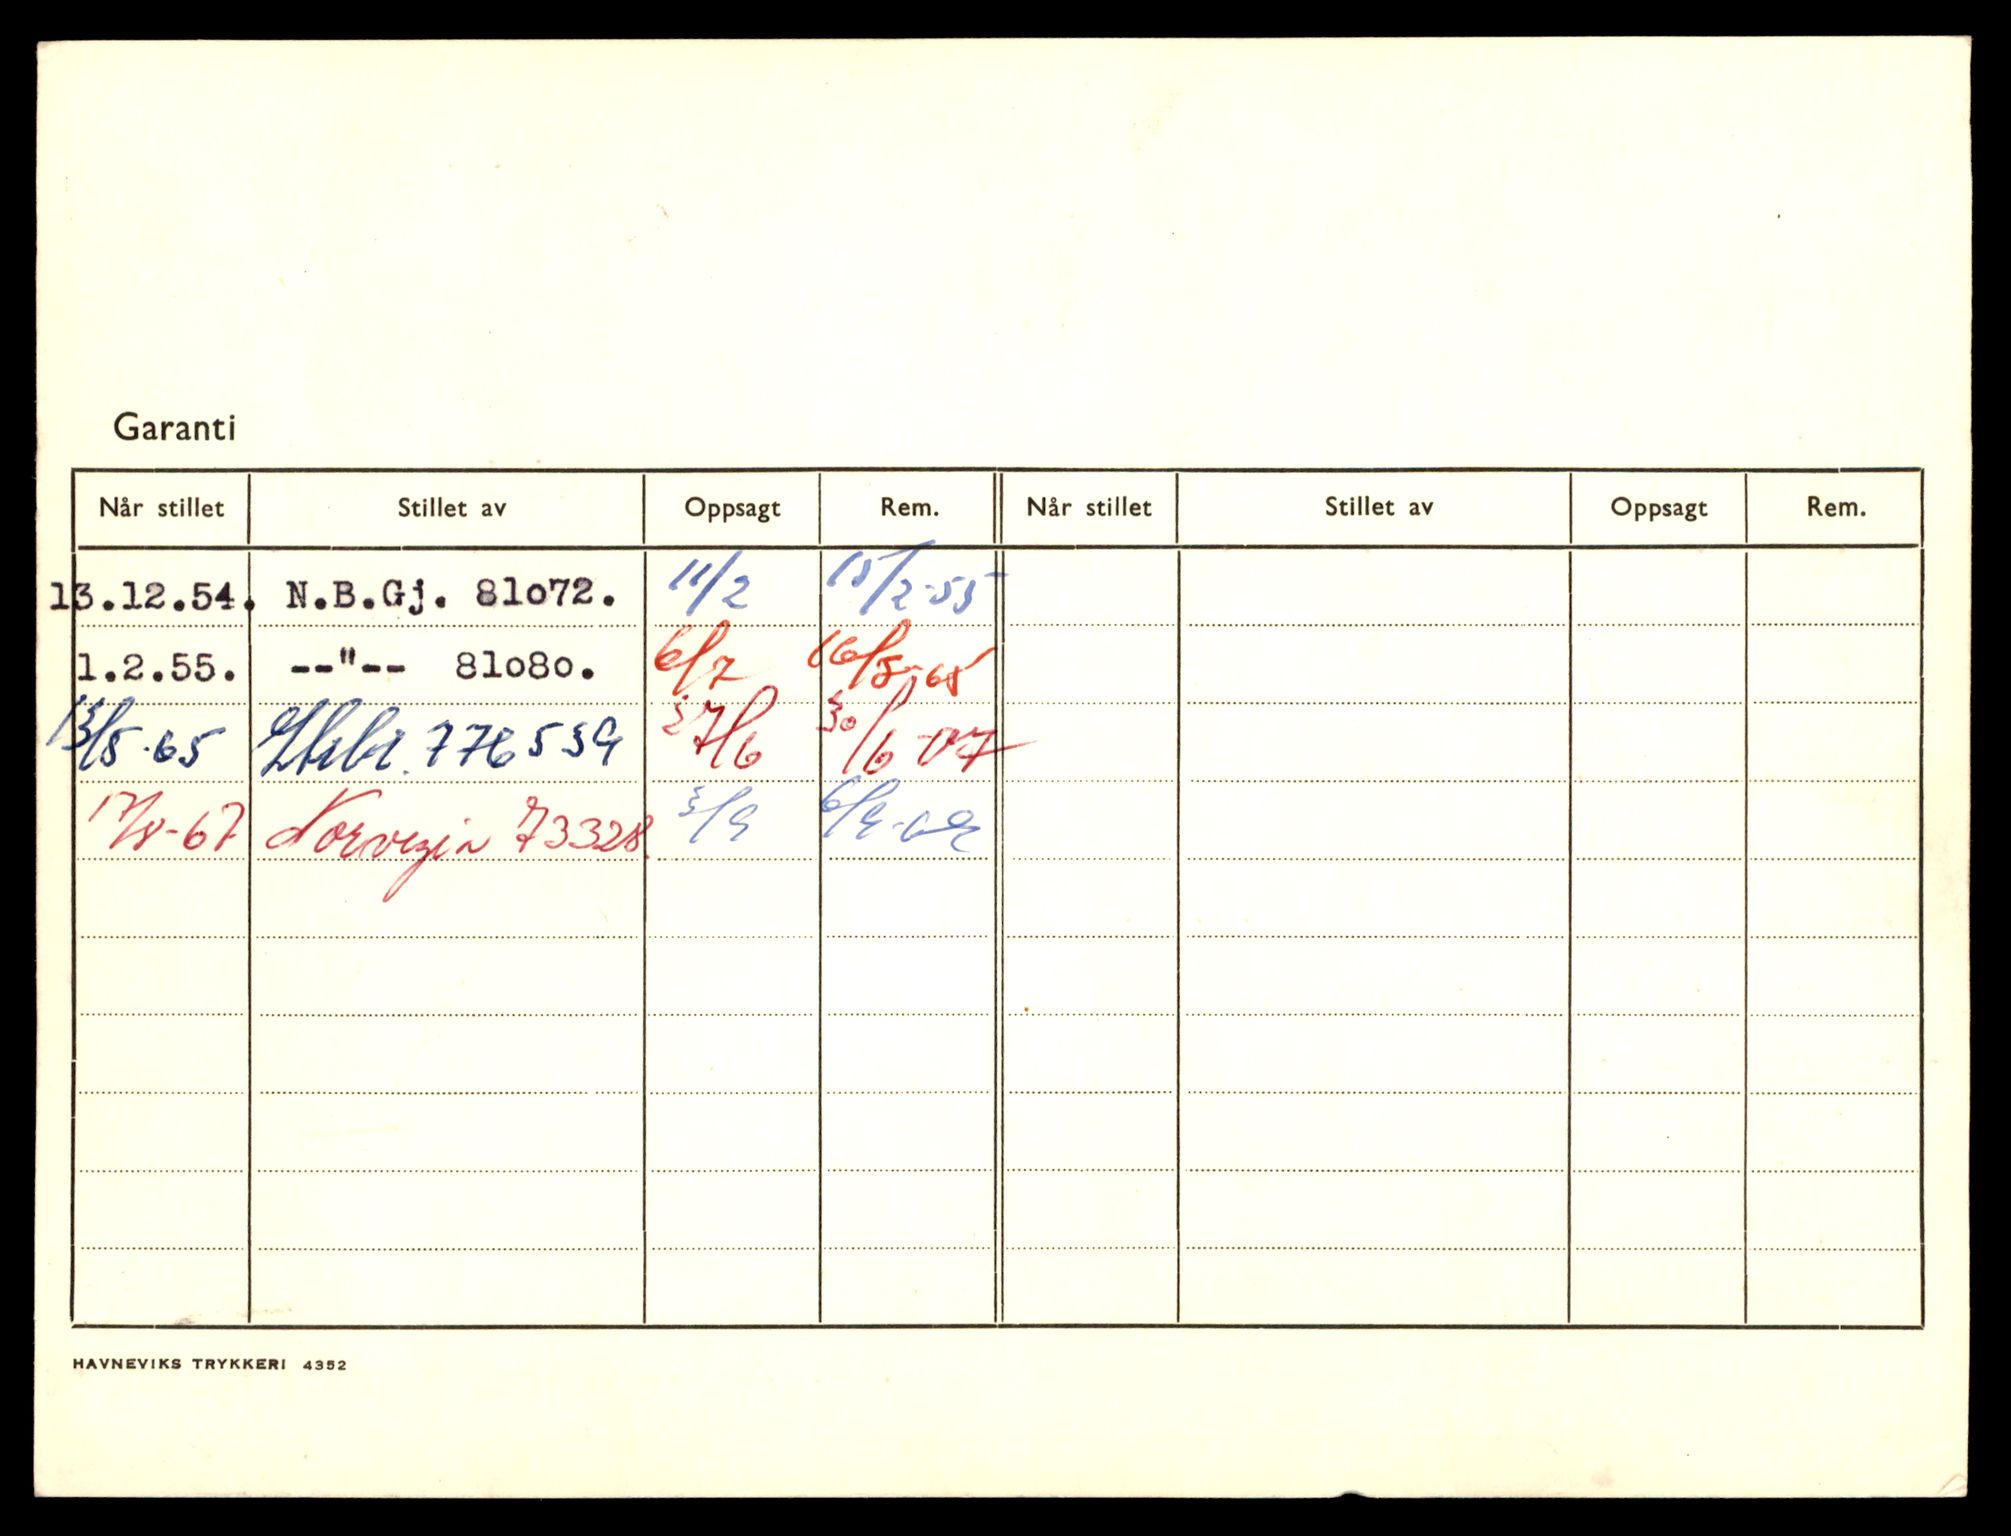 Garanti
Når stillet Stillet av Oppsagt Rem. Når stillet Stillet av Oppsagt Rem.
13.12.54. N.B.Gj. 81o72. 11/2 15/2-55
1.2.55. --"-- 81o8o. 6/7 16/5-65
13/5-65 776539 27/6 30/6-67
17/8-67 Norvegia 73328. 3/9 6/9-69
HAVNEVIKS TRYKKERI 4352